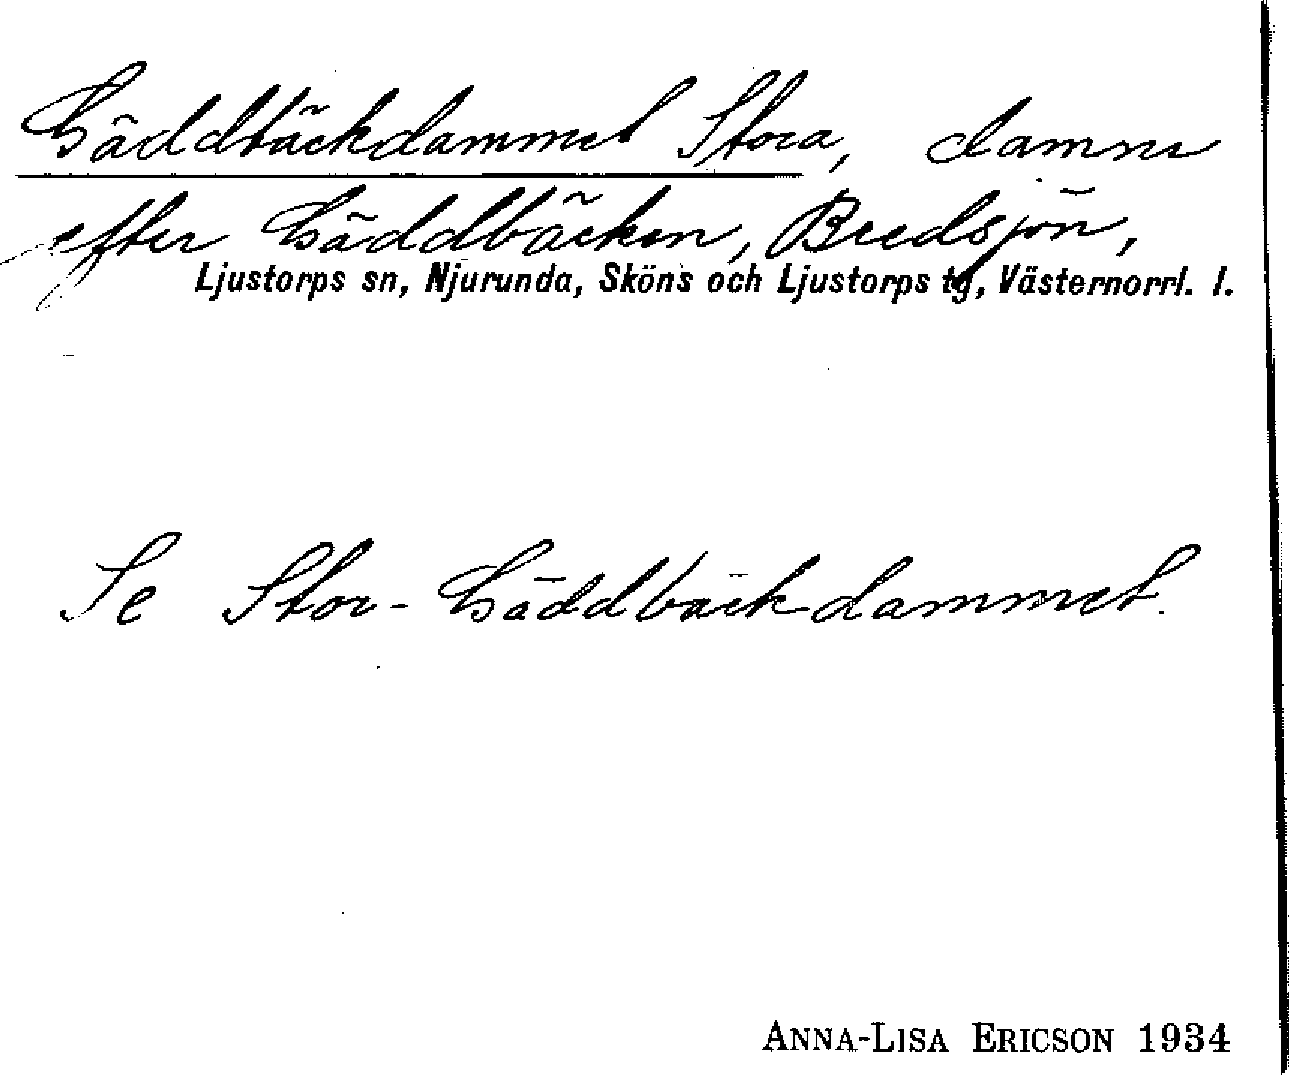 Gäddbäckdammet Stora, damm
efter Gäddbäcken, Bredsjön,
Ljustorps sn, Njurunda, Sköns och Ljustorps tg, Västernorrl. l.
Se Stor-Gäddbäckdammet.
ANNA-LISA ERICSON 1934